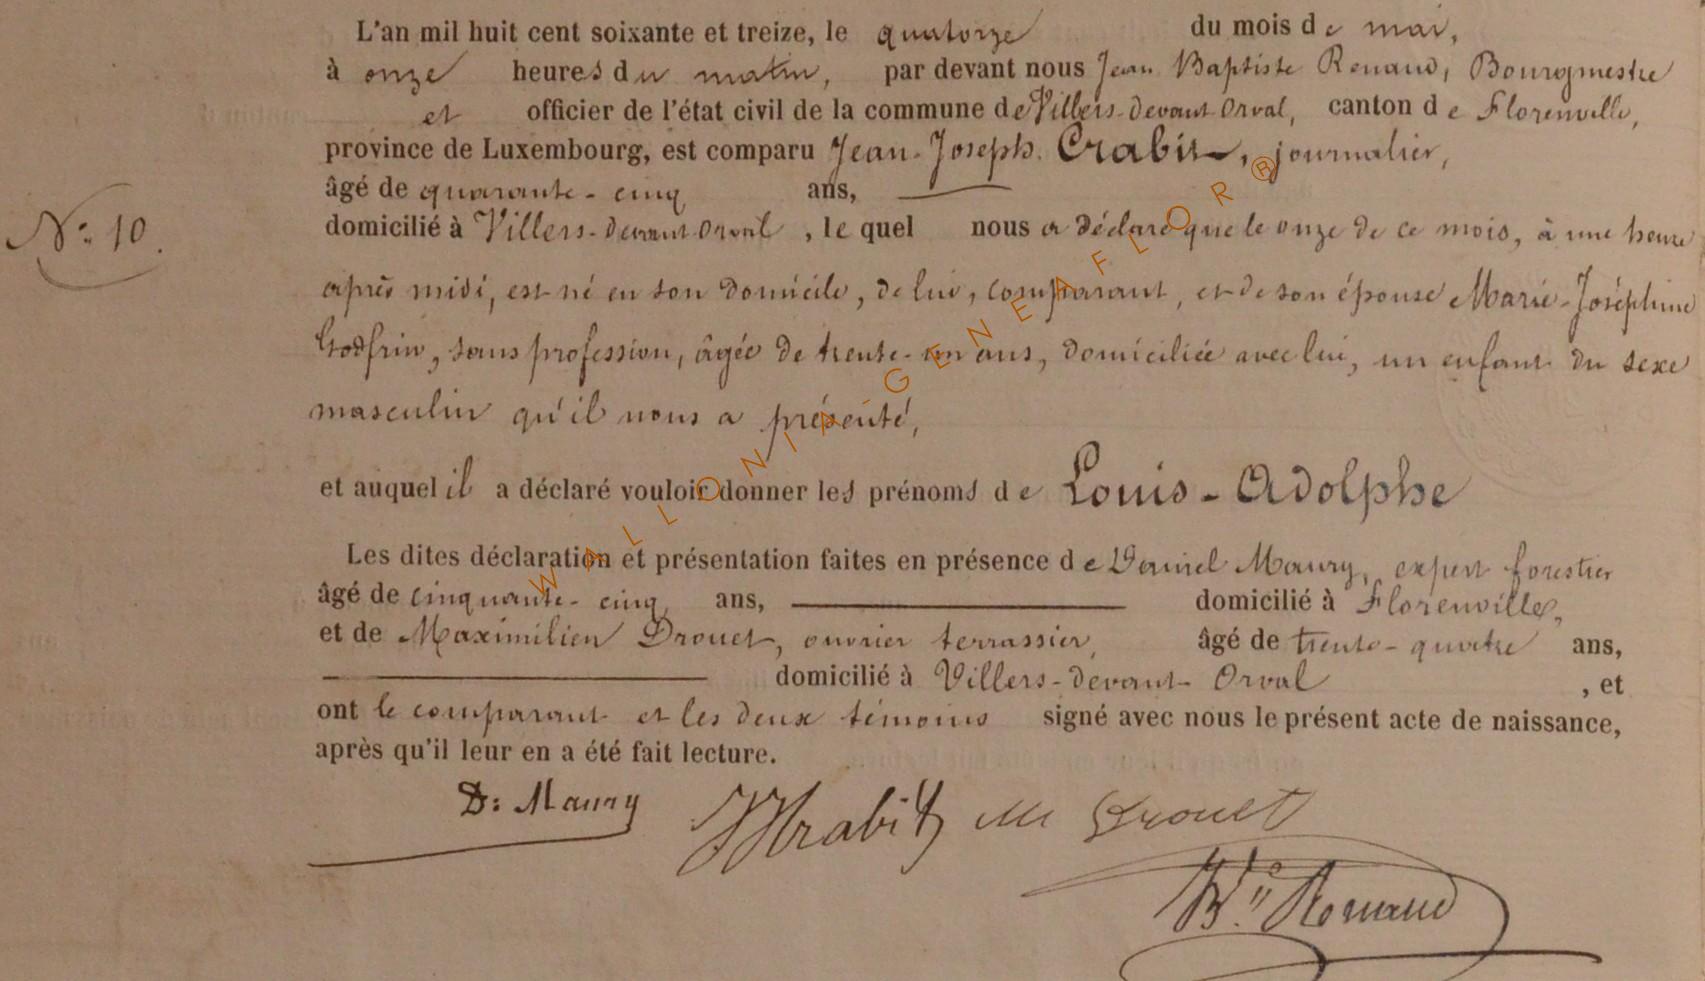 L'an mil huit cent soixante et treize, le quatorze du mois de mai,
à onze heures du matin, par devant nous Jean Baptiste Renaud, Bourgmestre
et officier de l'état civil de la commune de Villers-devant-Orval, canton de Florenville,
province de Luxembourg, est comparu Jean-Joseph Crabit, journalier,
âgé de quarante-cinq ans,
N° 10.
domicilié à Villers-devant-Orval, lequel nous a déclaré que le onze de ce mois, à une heure
après midi, est né en son domicile, de lui, comparant, et de son épouse Marie-Joséphine
Godfrin, sans profession, âgée de trente-un ans, domiciliée avec lui, un enfant du sexe
masculin qu'il nous a présenté,
et auquel il a déclaré vouloir donner les prénoms de Louis-Adolphe
Les dites déclaration et présentation faites en présence de Daniel Maury, expert forestier
âgé de cinquante-cinq ans, domicilié à Florenville,
et de Maximilien Drouet, ouvrier terrassier, âgé de trente-quatre ans,
domicilié à Villers-devant-Orval, et
ont le comparant et les deux témoins signé avec nous le présent acte de naissance,
après qu'il leur en a été fait lecture.
D: Maury Drouet
Renaud
WALLONIA-GENEAFLOR®